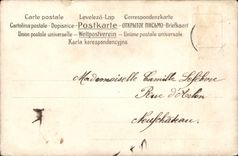 Carte postale Levelező-Lap Correspondenzkarte
Cartolina postale - Dopisnice - Postkarte - ОТКРЫТОЕ ПИСЬМО - Briefkaart
Union postale universelle - Weltpostverein - Unione postale universale
Karta korespondencyjna
Mademoiselle Camille Lefebvre
Rue d'
Neufchâteau